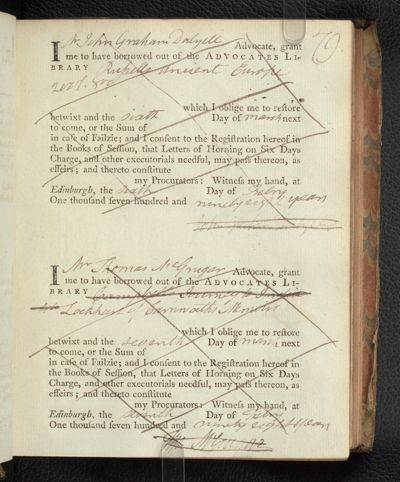 79.
I Mr John Graham Dalyell Advocate, grant
me to have borrowed out of the ADVOCATES LI-
BRARY Russells Ancient Europe
2 vol. 8vo
which I oblige me to restore
betwixt and the sixth Day of March next
to come, or the Sum of
in case of Failzie; and I consent to the Registration hereof in
the Books of Session, that Letters of Horning on Six Days
Charge, and other executorials needful, may pass thereon, as
effeirs; and thereto constitute
my Procurators: Witness my hand, at
Edinburgh, the sixth Day of Febry
One thousand seven hundred and ninety eight years
I Mr Thomas McGrugar Advocate, grant
me to have borrowed out of the ADVOCATES LI-
BRARY Campbells Journey to India
Lockhart of Carnwaths Memoirs
which I oblige me to restore
betwixt and the seventh Day of March next
to come, or the Sum of
in case of Failzie; and I consent to the Registration hereof in
the Books of Session, that Letters of Horning on Six Days
Charge, and other executorials needful, may pass thereon, as
effeirs; and thereto constitute
my Procurators: Witness my hand, at
Edinburgh, the seventh Day of Febry
One thousand seven hundred and ninety eight years